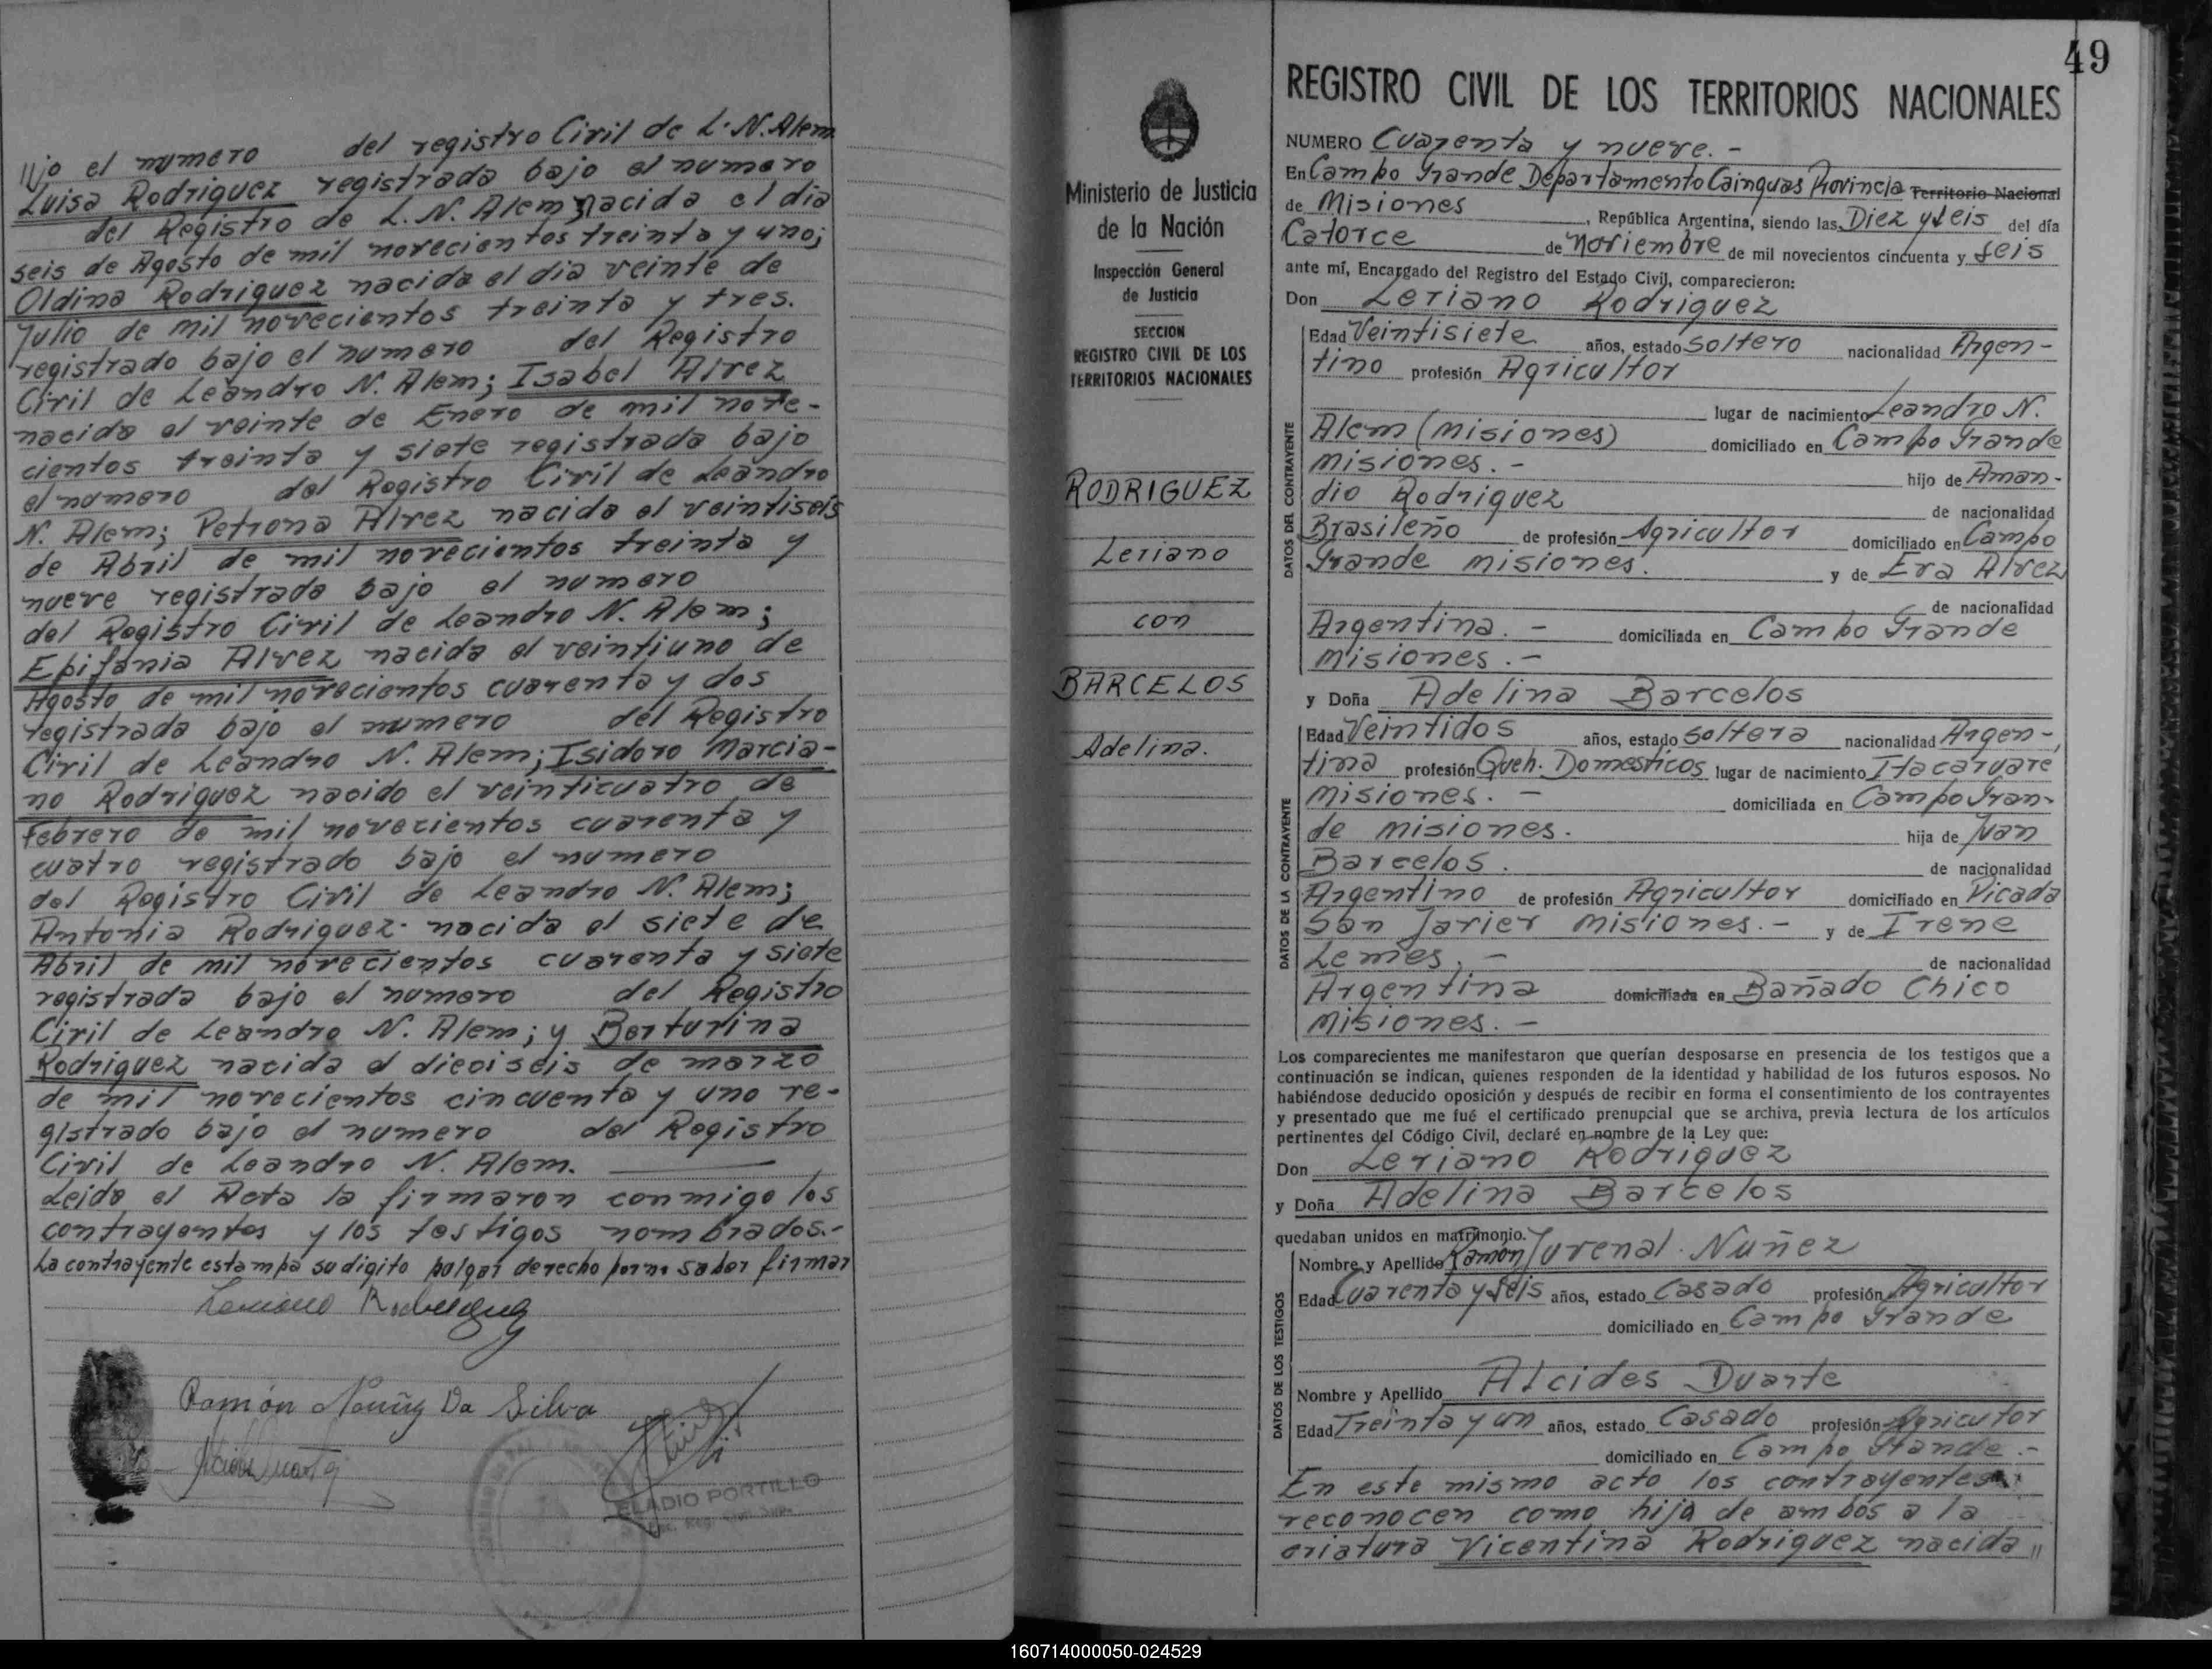 IIjo el numero del registro Civil de L. N. Alem
Luisa Rodriguez registrada bajo el numero
del Registro de L. N. Alem nacida el dia
seis de Agosto de mil novecientos treinta y uno;
Oldina Rodriguez nacida el dia veinte de
Julio de mil novecientos treinta y tres.
registrado bajo el numero del Registro
Civil de Leandro N. Alem; Isabel Alvez
nacida el veinte de Enero de mil nove-
cientos treinta y siete registrada bajo
el numero del Registro Civil de Leandro
N. Alem; Petrona Alvez nacida el veintiseis
de Abril de mil novecientos treinta y
nueve registrada bajo el numero
del Registro Civil de Leandro N. Alem;
Epifania Alvez nacida el veintiuno de
Agosto de mil novecientos cuarenta y dos
registrada bajo el numero del Registro
Civil de Leandro N. Alem; Isidoro Marcia-
no Rodriguez nacido el veinticuatro de
Febrero de mil novecientos cuarenta y
cuatro registrado bajo el numero
del Registro Civil de Leandro N. Alem;
Antonia Rodriguez nacida el siete de
Abril de mil novecientos cuarenta y siete
registrada bajo el numero del Registro
Civil de Leandro N. Alem; y Berturina
Rodriguez nacida el dieciseis de marzo
de mil novecientos cincuenta y uno re-
gistrado bajo el numero del Registro
Civil de Leandro N. Alem.
Leida el Acta la firmaron conmigo los
contrayentes y los testigos nombrados.-
La contrayente estampa su digito pulgar derecho por no saber firmar
Leriano Rodriguez
Ramón Nuñez Da Silva
Alcides Duarte
ELADIO PORTILLO
49
Ministerio de Justicia
de la Nación
Inspección General
de Justicia
SECCION
REGISTRO CIVIL DE LOS
TERRITORIOS NACIONALES
RODRIGUEZ
Leriano
con
BARCELOS
Adelina.
REGISTRO CIVIL DE LOS TERRITORIOS NACIONALES
NUMERO Cuarenta y nueve. -
En Campo Grande Departamento Cainguas Provincia Territorio Nacional
de Misiones, República Argentina, siendo las Diez y seis del día
Catorce de Noviembre de mil novecientos cincuenta y seis
ante mí, Encargado del Registro del Estado Civil, comparecieron:
Don Leriano Rodriguez
Edad Veintisiete años, estado soltero nacionalidad Argen-
tino profesión Agricultor
lugar de nacimiento Leandro N.
Alem (Misiones) domiciliado en Campo Grande
Misiones. - hijo de Aman-
dio Rodriguez de nacionalidad
Brasileño de profesión Agricultor domiciliado en Campo
Grande Misiones. y de Eva Alvez
de nacionalidad
Argentina. - domiciliada en Campo Grande
Misiones. -
DATOS DEL CONTRAYENTE
y Doña Adelina Barcelos
Edad Veintidos años, estado soltera nacionalidad Argen-
tina profesión Queh. Domesticos lugar de nacimiento Itacaruare
Misiones. - domiciliada en Campo Gran-
de Misiones. hija de Juan
Barcelos. de nacionalidad
Argentino de profesión Agricultor domiciliado en Picada
San Javier Misiones. - y de Irene
Lemes. - de nacionalidad
Argentina domiciliada en Bañado Chico
Misiones. -
DATOS DE LA CONTRAYENTE
Los comparecientes me manifestaron que querían desposarse en presencia de los testigos que a
continuación se indican, quienes responden de la identidad y habilidad de los futuros esposos. No
habiéndose deducido oposición y después de recibir en forma el consentimiento de los contrayentes
y presentado que me fué el certificado prenupcial que se archiva, previa lectura de los artículos
pertinentes del Código Civil, declaré en nombre de la Ley que:
Don Leriano Rodriguez
y Doña Adelina Barcelos
quedaban unidos en matrimonio.
Nombre y Apellido Ramón Juvenal Nuñez
Edad Cuarenta y seis años, estado Casado profesión Agricultor
domiciliado en Campo Grande
Nombre y Apellido Alcides Duarte
Edad Treinta y un años, estado Casado profesión Agricutor
domiciliado en Campo Grande. -
DATOS DE LOS TESTIGOS
En este mismo acto los contrayentes
reconocen como hija de ambos a la
criatura Vicentina Rodriguez nacida II
160714000050-024529